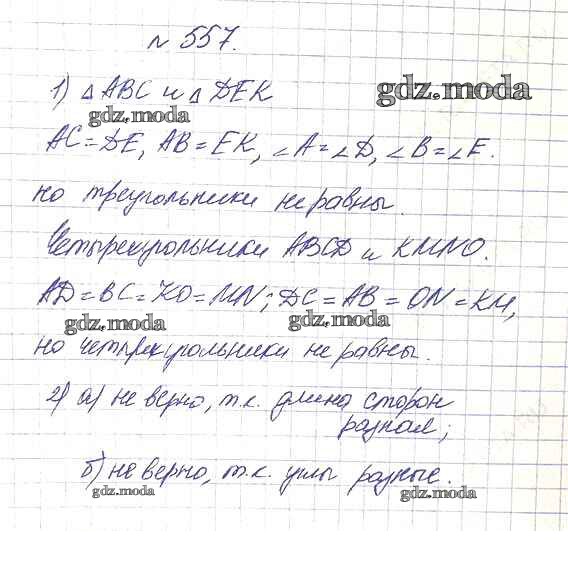 № 557.
1) △ ABC и △ DEK
gdz.moda
gdz.moda
AC = DE, AB = EK, ∠A = ∠D, ∠B = ∠E.
но треугольники не равны.
Четырехугольники ABCD и KMNO.
AD = BC = KO = MN; DC = AB = ON = KM,
gdz.moda
gdz.moda
но четырехугольники не равны.
2) а) не верно, т.к. длина сторон
разная;
б) не верно, т.к. углы разные.
gdz.moda
gdz.moda